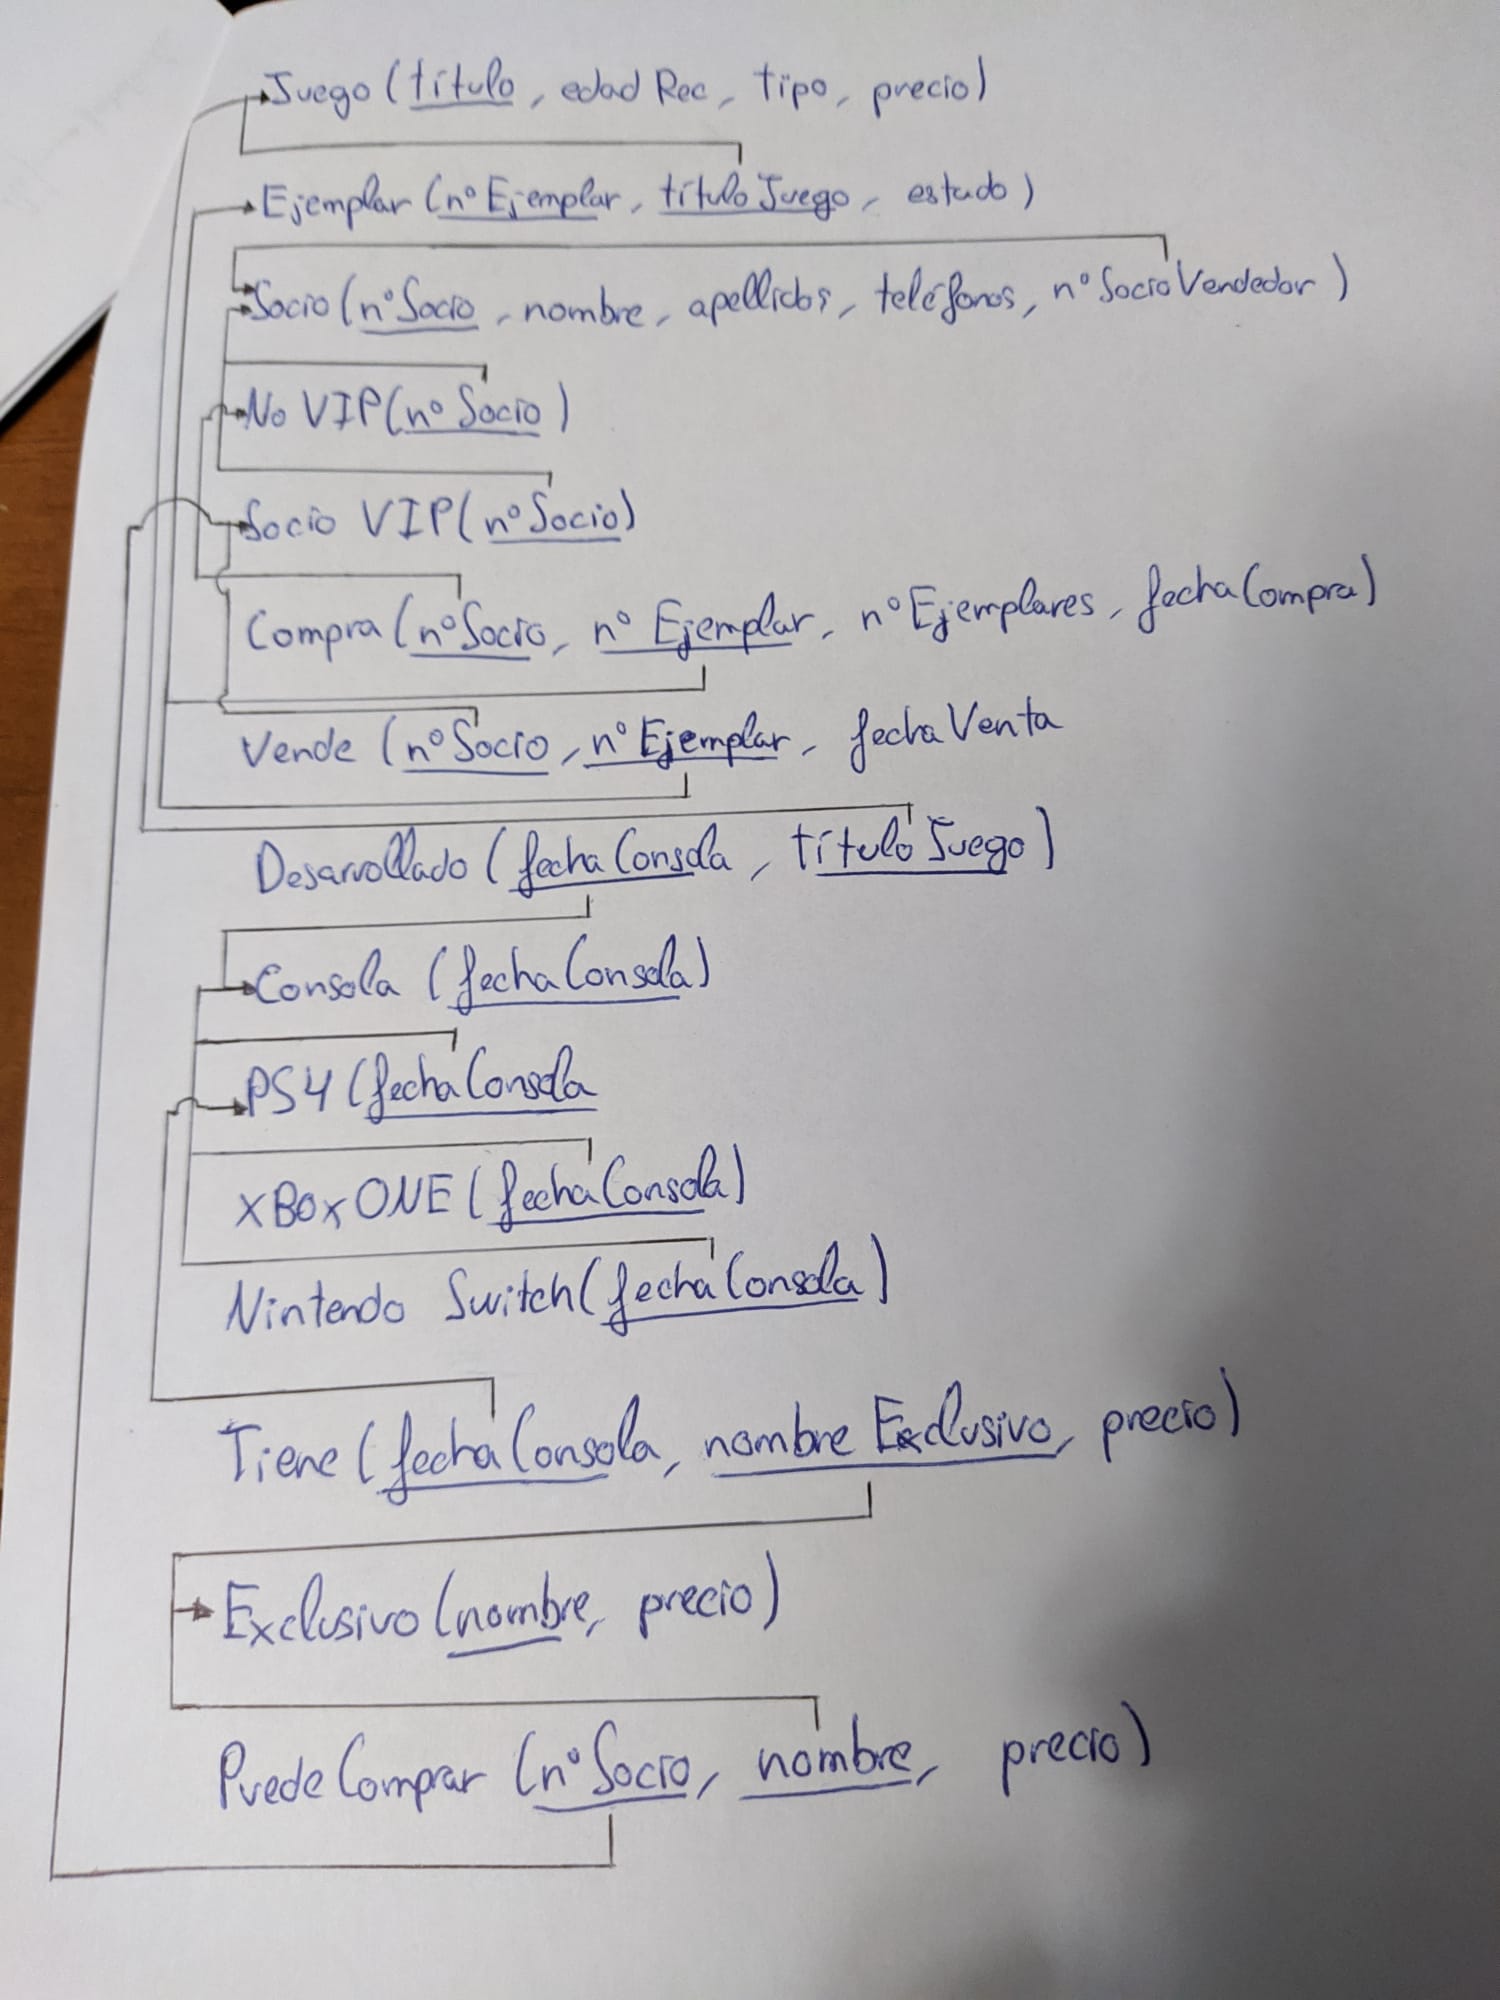 Juego (título, edad Rec, tipo, precio)
Ejemplar (nº Ejemplar, título Juego, estado)
Socio (nº Socio, nombre, apellidos, teléfonos, nº Socio Vendedor)
No VIP (nº Socio)
Socio VIP (nº Socio)
Compra (nº Socio, nº Ejemplar, nº Ejemplares, fecha Compra)
Vende (nº Socio, nº Ejemplar, fecha Venta
Desarrollado (fecha Consola, título Juego)
Consola (fecha Consola)
PS4 (fecha Consola
XBOX ONE (fecha Consola)
Nintendo Switch (fecha Consola)
Tiene (fecha Consola, nombre Exclusivo, precio)
Exclusivo (nombre, precio)
Puede Comprar (nº Socio, nombre, precio)